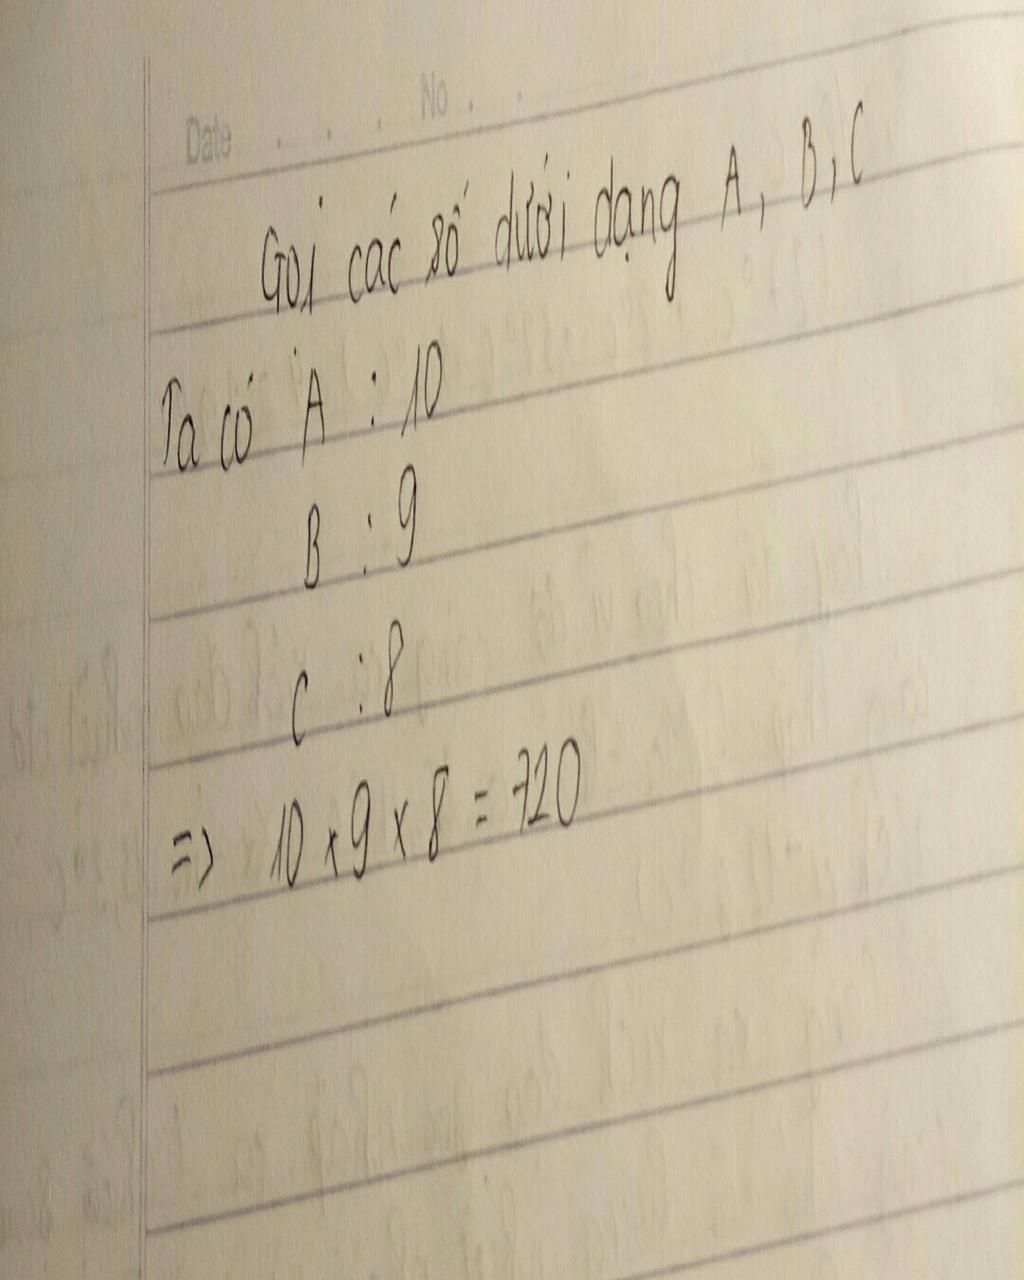 Date . . . No . .
Gọi các số dưới dạng A, B, C
Ta có A : 10
B : 9
C : 8
=> 10 x 9 x 8 = 720